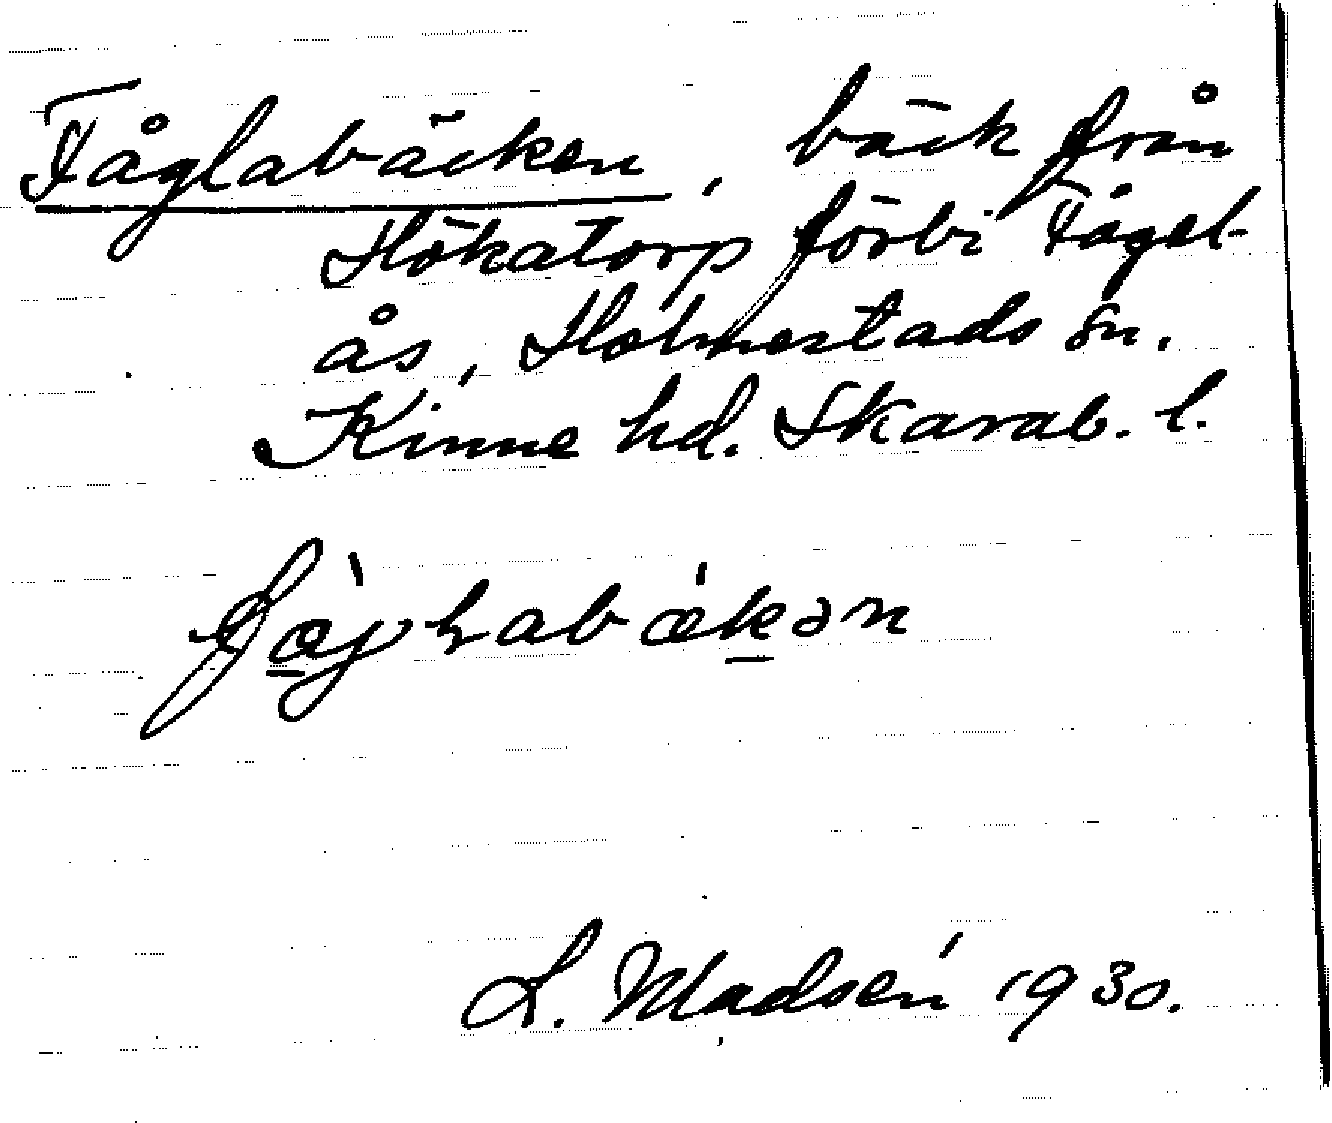 Fåglabäcken, bäck från
Hökatorp förbi Fågel-
ås, Holmestads sn.
Kinne hd. Skarab. l.
L. Madsén 1930.